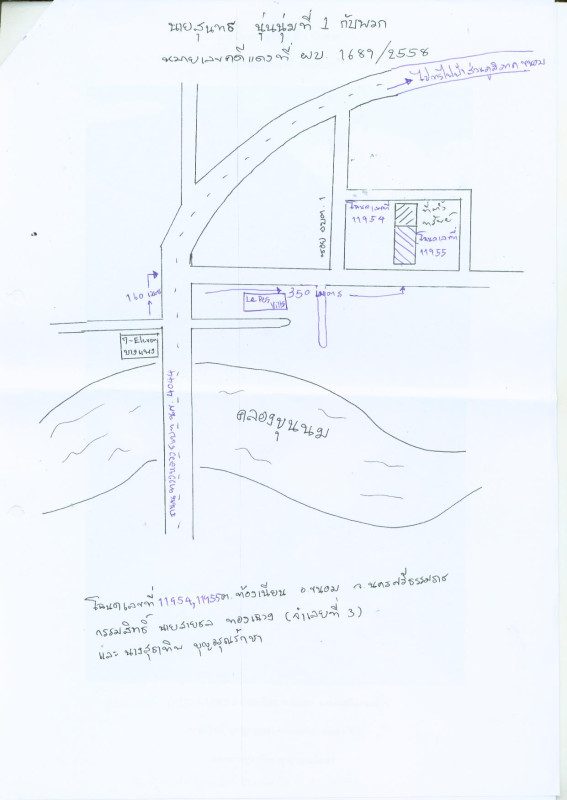 นายสุนทร นุ่นนุ่มที่ 1 กับพวก
หมายเลขคดีแดงที่ ผบ. 1689/2558
ไปการไฟฟ้าส่วนภูมิภาค ขนอม
ซอย อบต. 1
โฉนดเลขที่
11954
ที่ตั้ง
ทรัพย์
โฉนดเลขที่
11955
160 เมตร
350 เมตร
Le Pes
Villa
7-Eleven
บางแพง
คลองขุนนม
4044
โฉนดเลขที่ 11954, 11955 ต. ท้องเนียน อ. ขนอม จ. นครศรีธรรมราช
กรรมสิทธิ์ นายสายชล ทองเฉวง (จำเลยที่ 3)
และ นาง